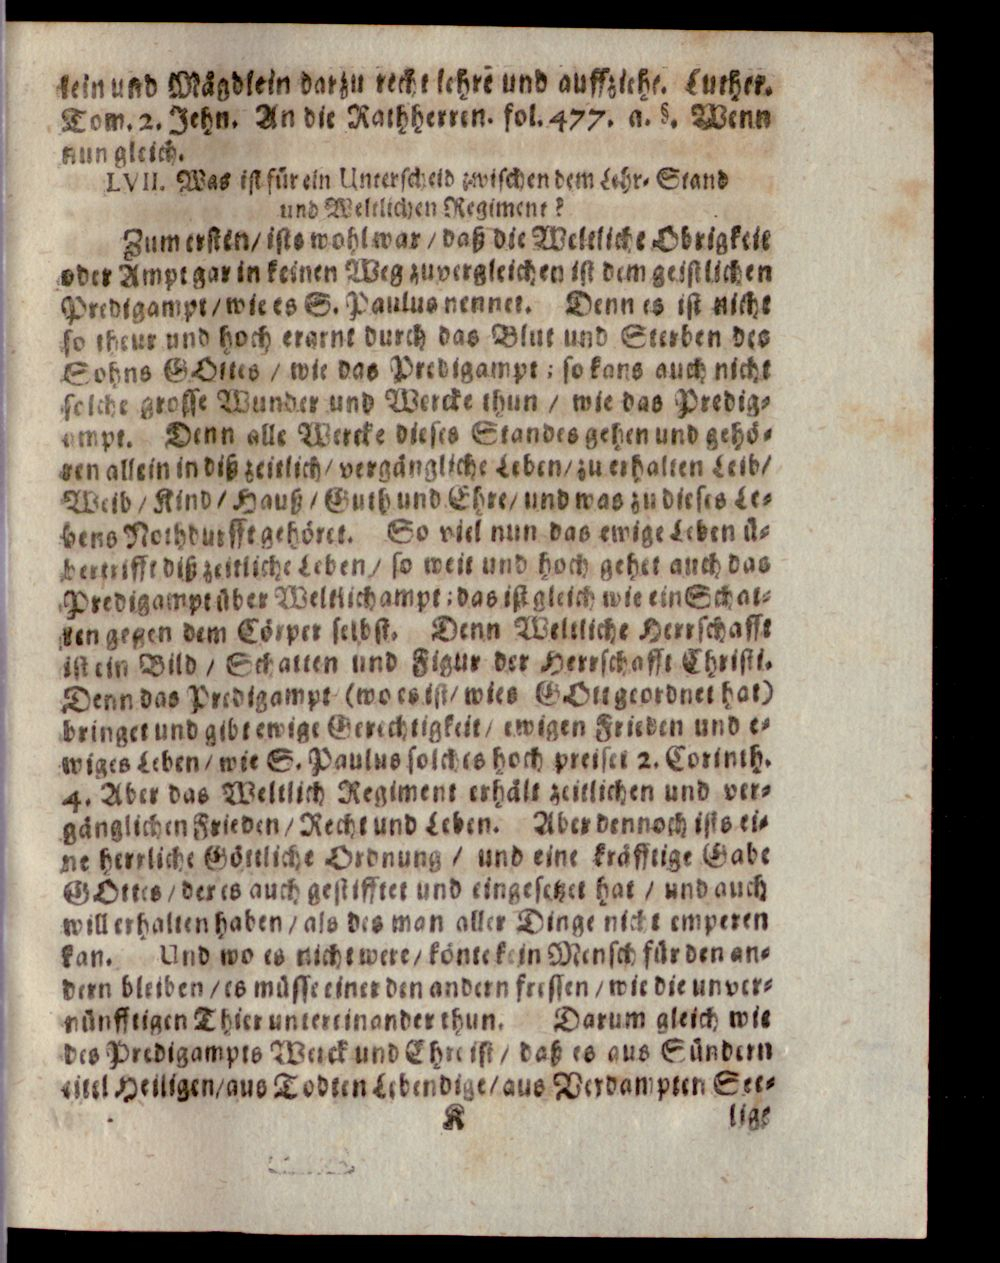 lein und Mägdlein darzu recht lehrē und auffziehe. Luther.
Tom. 2. Jehn. An die Rathherren. fol. 477. a. §. Wenn
nun gleich.
LVII. Was ist für ein Unterscheid zwischen dem Lehr- Stand
und Weltlichen Regiment?
Zum ersten/ ists wohl war / daß die Weltliche Obrigkeit
oder Ampt gar in keinen Weg zuvergleichen ist dem geistlichen
Predigampt / wie es S. Paulus nennet. Denn es ist nicht
so theur und hoch erarnt durch das Blut und Sterben des
Sohns GOttes / wie das Predigampt ; so kans auch nicht
solche grosse Wunder und Wercke thun / wie das Predig-
ampt. Denn alle Wercke dieses Standes gehen und gehö-
ren allein in diß zeitlich/ vergängliche Leben/ zu erhalten Leib/
Weib / Kind / Hauß / Guth und Ehre/ und was zu dieses Le-
bens Nothdurfft gehöret. So viel nun das ewige Leben ü-
bertrifft diß zeitliche Leben / so weit und hoch gehet auch das
Predigampt über Weltlich ampt ; das ist gleich wie ein Schat-
ten gegen dem Cörper selbst. Denn Weltliche Herrschafft
ist ein Bild / Schatten und Figur der Herrschafft Christi.
Denn das Predigampt (wo es ist/ wies GOtt geordnet hat)
bringet und gibt ewige Gerechtigkeit/ ewigen Frieden und e-
wiges Leben / wie S. Paulus solches hoch preiset 2. Corinth.
4. Aber das Weltlich Regiment erhält zeitlichen und ver-
gänglichen Frieden / Recht und Leben. Aber dennoch ists ei-
ne herrliche Göttliche Ordnung / und eine kräfftige Gabe
GOttes / der es auch gestifftet und eingesetzet hat / und auch
will erhalten haben / als des man aller Dinge nicht emperen
kan. Und wo es nicht were / könte kein Mensch für den an-
dern bleiben / es müsse einer den andern fressen / wie die unver-
nünfftigen Thier untereinander thun. Darum gleich wie
des Predigampts Werck und Ehre ist / daß es aus Sündern
eitel Heiligen/ aus Todten Lebendige / aus Verdampten See-
K lige